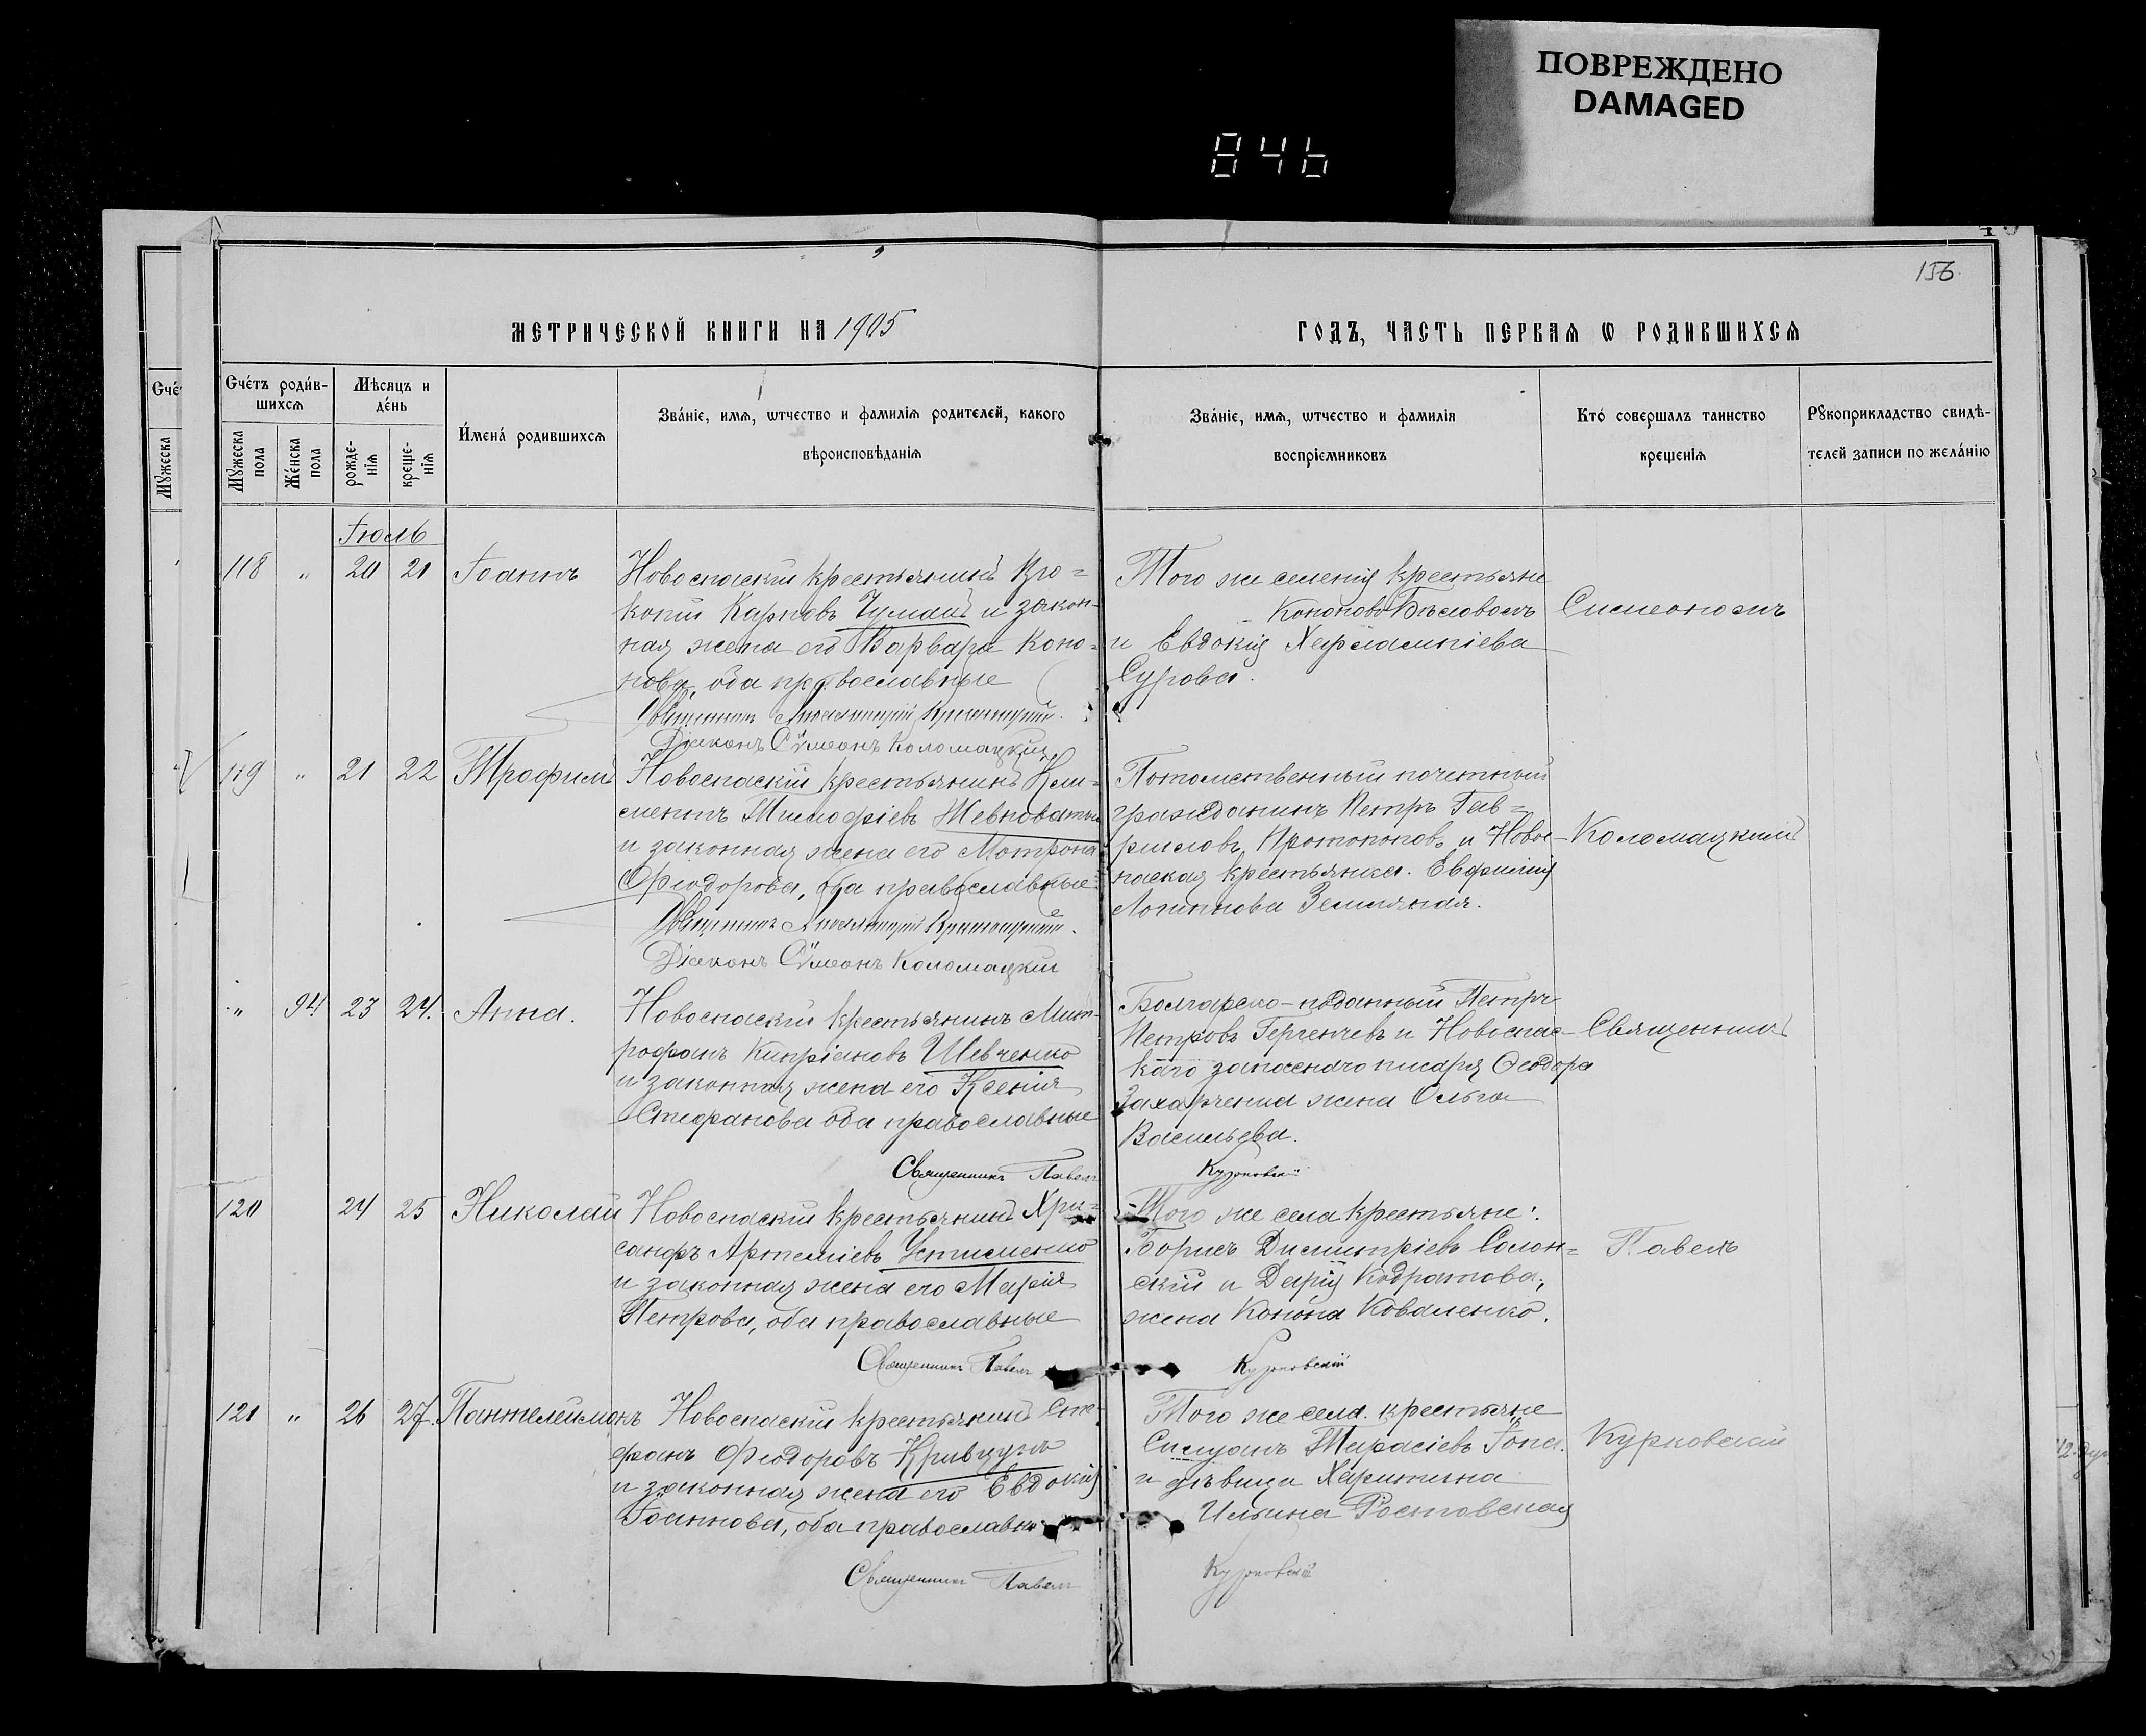 ПОВРЕЖДЕНО
DAMAGED
846
156
МЕТРИЧЕСКОЙ КНИГИ НА 1905
ГОДЪ, ЧАСТЬ ПЕРВАЯ Ѡ РОДИВШИХСЯ
Счéтъ роди́в-
шихсѧ
Мѣсяцъ и
дéнь
И́менá родившихсѧ
Звáнїе, имѧ, ѡтчество и фамилїѧ родителей, какого
вѣроисповѣданїѧ
Звáнїе, имѧ, ѡтчество и фамилїѧ
воспрїемниковъ
Ктó совершалъ таинство
крещенїѧ
Рꙋкоприкладство свидѣ-
телей записи по желáнїю
Мꙋжеска
пола
Жéнска
пола
рожде-
нїѧ
креще-
нїѧ
Іюль
118 " 20 21 Іоаннъ
Новоспаскій крестьянинъ Про=
копій Карповъ Чумакъ и закон-
ная жена его Варвара Коно=
нова, оба православные
Священникъ
Діаконъ Сѵмеонъ Коломацкій
Того же селенія крестьяне
Кононовъ Бѣловолъ
и Евдокія Харлампіева
Сурова.
Симеономъ
119 " 21 22 Трофимъ
Новоспаскій крестьянинъ Кли=
ментъ Тимофіевъ Жевноватый
и законная жена его Мотрона
Феодорова, оба православные
Священникъ
Діаконъ Сѵмеонъ Коломацкій
Потомственный почетный
гражданинъ Петръ Гав=
риловъ Протопоповъ и Новос-
паская крестьянка Евфимія
Логиннова Земляная.
Коломацкій
" 94 23 24. Анна.
Новоспаскій крестьянинъ Мит-
рофанъ Кипріановъ Шевченко
и законная жена его Ксенія
Стефанова оба православные
Священникъ Павелъ Курковскій
Болгарско-подданный Петръ
Петровъ Гергенчевъ и Новоспас-
каго запаснаго писаря Феодора
Захарченка жена Ольга
Васильева.
Священникъ
120 24 25 Николай
Новоспаскій крестьянинъ Хри=
санфъ Артеміевъ Устименко
и законная жена его Марія
Петрова, оба православные
Священникъ Павелъ Курковскій
Того же села крестьяне:
Борисъ Димитріевъ Солон=
скій и Дарія Кодратова,
жена Конона Коваленко.
Павелъ
121 " 26 27. Пантелеймонъ
Новоспаскій крестьянинъ Сте-
фанъ Феодоровъ Кривцунъ
и законная жена его Евдокія
Іоаннова, оба православн
Священникъ Павелъ Курковскій
Того же села крестьяне
Силуанъ Тарасіевъ
и дѣвица Харитина
Ильина Ростовская
Курковскій